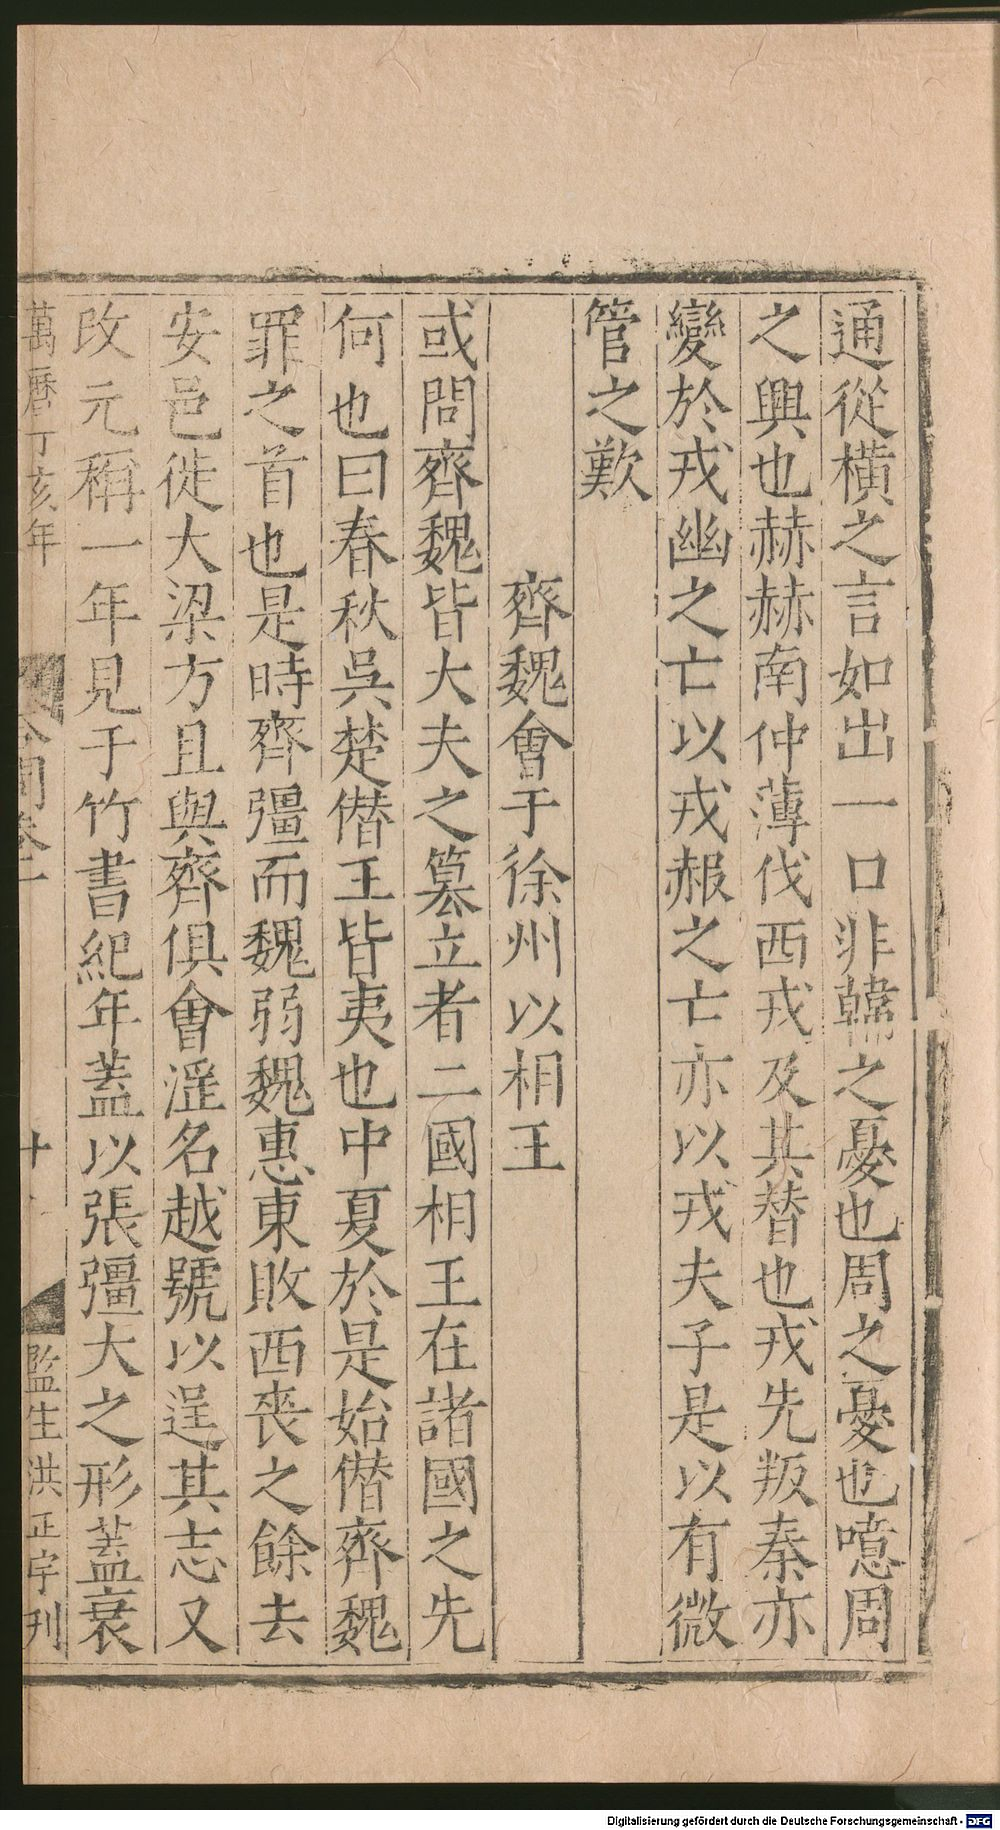 通從橫之言如出一口非韓之憂也周之憂也噫周
之興也赫赫南仲薄伐西戎及其替也戎先叛秦亦
變於戎幽之亡以戎赧之亡亦以戎夫子是以有微
管之歎
齊魏會于徐州以相王
或問齊魏皆大夫之簒立者二國相王在諸國之先
何也曰春秋吳楚僣王皆夷也中夏於是始僣齊魏
罪之首也是時齊彊而魏弱魏惠東敗西喪之餘去
安邑徙大梁方且與齊俱會溼名越號以逞其志又
改元稱一年見于竹書紀年蓋以張彊大之形蓋衰
萬曆丁亥年
答問卷二
十
監生洪正字刊
Digitalisierung gefördert durch die Deutsche Forschungsgemeinschaft - DFG